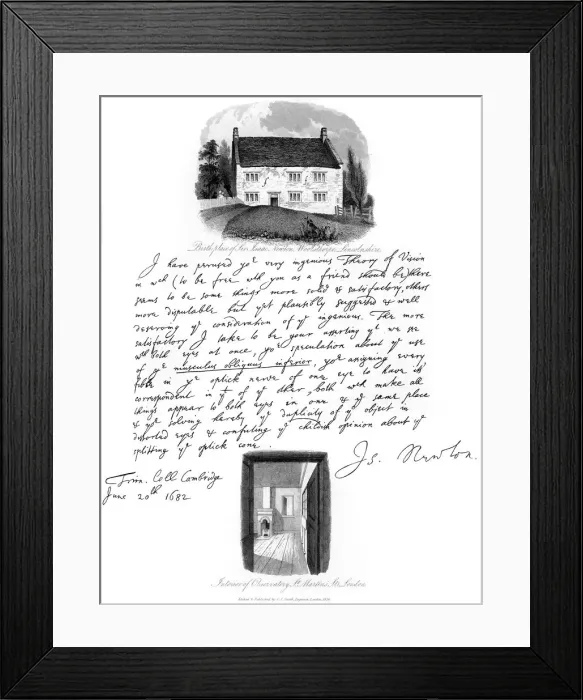 Birth place of Sir Isaac Newton Woolsthorpe, Lincolnshire
I have perused yor very ingenious Theory of Vision
in wch (to be free with you as a friend should be) there
seems to be some things more solid & satisfactory, others
more disputable but yet plausibly suggested & well
deserving ye consideration of ye ingenious. The more
satisfactory I take to be your asserting yt we see
with both eyes at once, yor speculation about ye use
of ye musculus obliquus inferior, yor assigning every
fibre in ye optick nerve of one eye to have its
correspondent in yt of ye other, both wch make all
things appear to both eyes in one & ye same place
& yor solving hereby ye duplicity of ye object in
distorted eyes & confuting ye childish opinion about ye
splitting ye optick cone.
Is. Newton.
Trin. Coll Cambridge
June 20th 1682
Interior of Observatory, St. Martins St. London